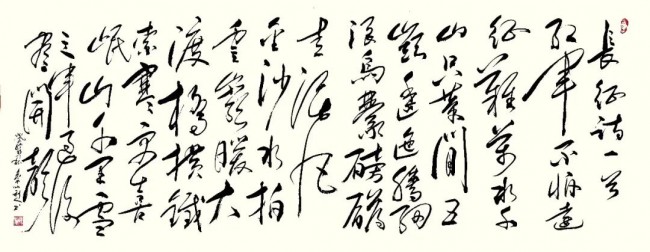 長征詩一首
红軍不怕遠
征難萬水千
山只等閒五
嶺逶迤騰細
浪烏蒙磅礴
走泥丸
金沙水拍
雲崖暖大
渡橋横鐵
索寒更喜
岷山千里雪
三軍過後
盡開顔